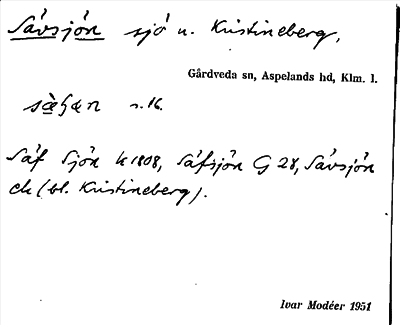 Sävsjön sjö n. Kristineberg,
Gårdveda sn, Aspelands hd, Klm. l.
s. 16.
Säf Sjön k 1808, Säfsjön G 28, Sävsjön
ek (bl. Kristineberg).
Ivar Modéer 1951